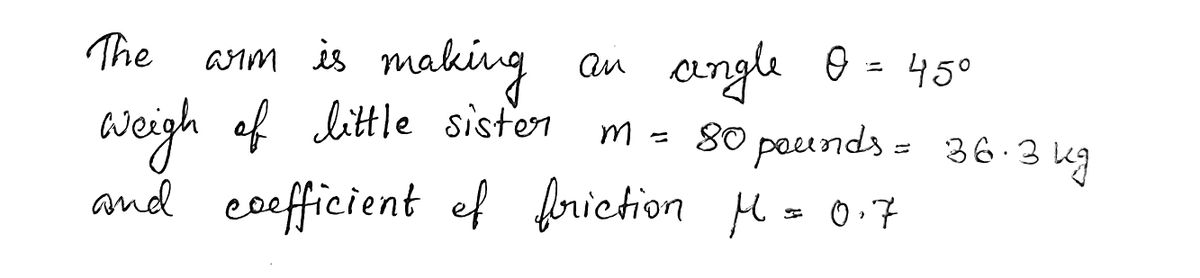 The arm is making an angle θ = 45°
weigh of little sister m = 80 pounds = 36.3 kg
and coefficient of friction μ = 0.7